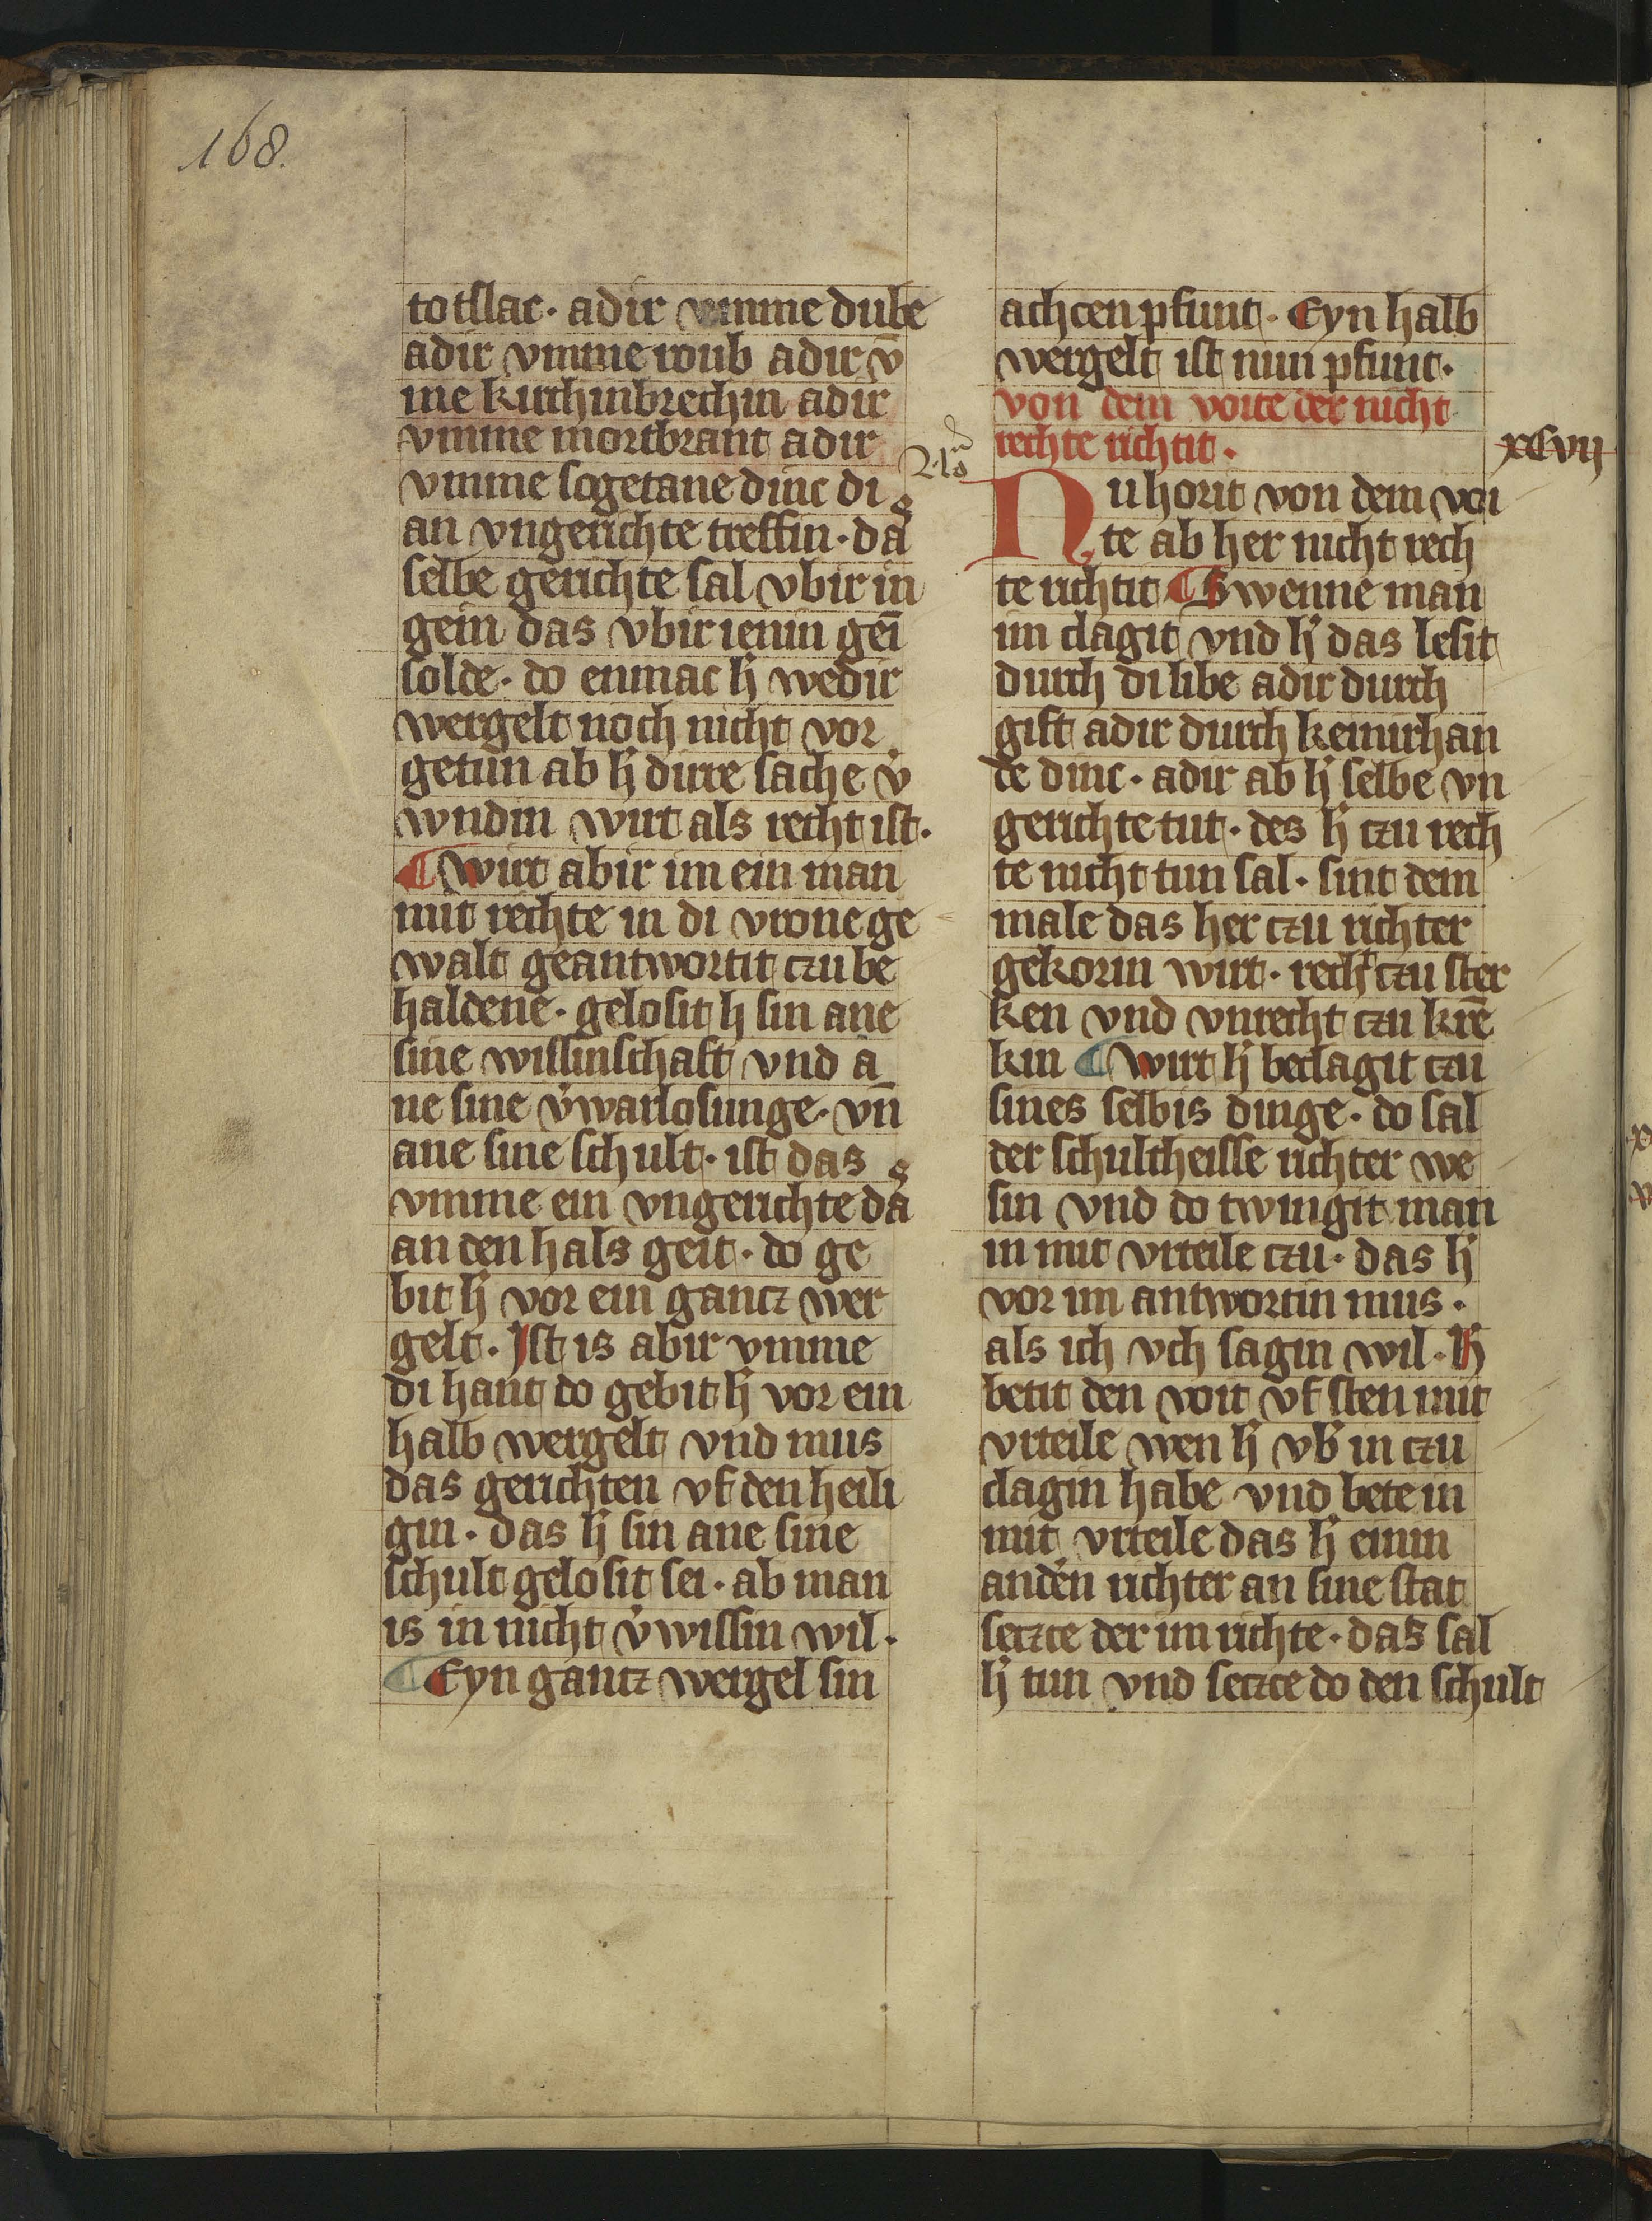 168.
totslac · adir vmme dube
adir vmme roub adir v̄
me kirchinbrechin adir
vmme mortbrant adir
vmme sogetane dinc di
an vngerichte treffin · daˢ
selbe gerichte sal vbir in
gein das vbir ienin gēi
solde · do enmac h̓ wedir
wergelt noch nicht vor
getun ab h̓ dirre sache v̓
wndin wirt als recht ist ·
¶ wirt abir im ein man
mit rechte in di vrone ge
walt geantwortit czu be
haldene · gelosit h sin ane
sine wissinschaft vnd a
ne sine v̓warlosunge · vn̄
ane sine schult · ist das
vmme ein vngerichte daˢ
an den hals geit · do ge
bit h̓ vor ein gancz wer
gelt · Ist is abir vmme
di hant do gebit h̓ vor ein
halb wergelt vnd mus
das gerichten vf den heili
gin · das h̓ sin ane sine
schult gelosit sei · ab man
is in nicht v̓wissin wil ·
¶ Eyn gancz wergel sin
achcen pfunt · Eyn halb
wergelt ist nun pfunt ·
von dem voite der nicht
rechte richtit ·
xcvij
Nu horit von dem voi
te ab her nicht rech
te richtit ¶ Swenne man
im clagit vnd h̓ das lesit
durch di libe adir durch
gift adir durch keinirhan
de dinc · adir ab h̓ selbe vn
gerichte tut · des h̓ czu rech
te nicht tun sal · sint dem
male das her czu richter
gekorin wirt · recht czu ster
ken vnd vnrecht czu krē
kin ¶ wirt h̓ beclagit czu
sines selbis dinge · do sal
der schultheisse richter we
sin vnd do twingit man
in mit vrteile czu · das h̓
vor im antwortin mus ·
als ich vch sagin wil · H̓
betit den voit vf sten mit
vrteile wen h̓ vb̓ in czu
clagin habe vnd bete in
mit vrteile das h̓ einin
anden̓ richter an sine stat
seczce der im richte · das sal
h̓ tun vnd seczce do den schult